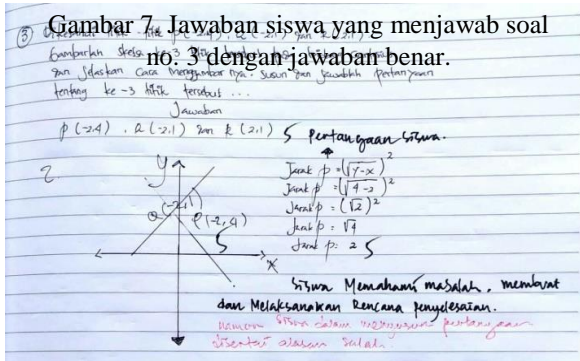 Gambar 7. Jawaban siswa yang menjawab soal
no. 3 dengan jawaban benar.
③ titik - titik P(-2,4), Q(-2,1) dan R(2,1)
Gambarlah sketsa ke-3 titik
dan jelaskan cara menggambar nya. Susun dan jawablah pertanyaan
tentang ke-3 titik tersebut ...
Jawaban
P (-2,4) , Q (-2,1) dan R (2,1) 5
Pertanyaan siswa.
2.
y
Q(-2,1)
P(-2,4)
5
x
Jarak p = (√y-x)²
Jarak p = (√4-2)²
Jarak p = (√2)²
Jarak p = √4
Jarak p = 2 5
Siswa Memahami masalah, membuat
dan Melaksanakan Rencana penyelesaian.
namun siswa dalam menyusun pertanyaan
disertai alasan salah.